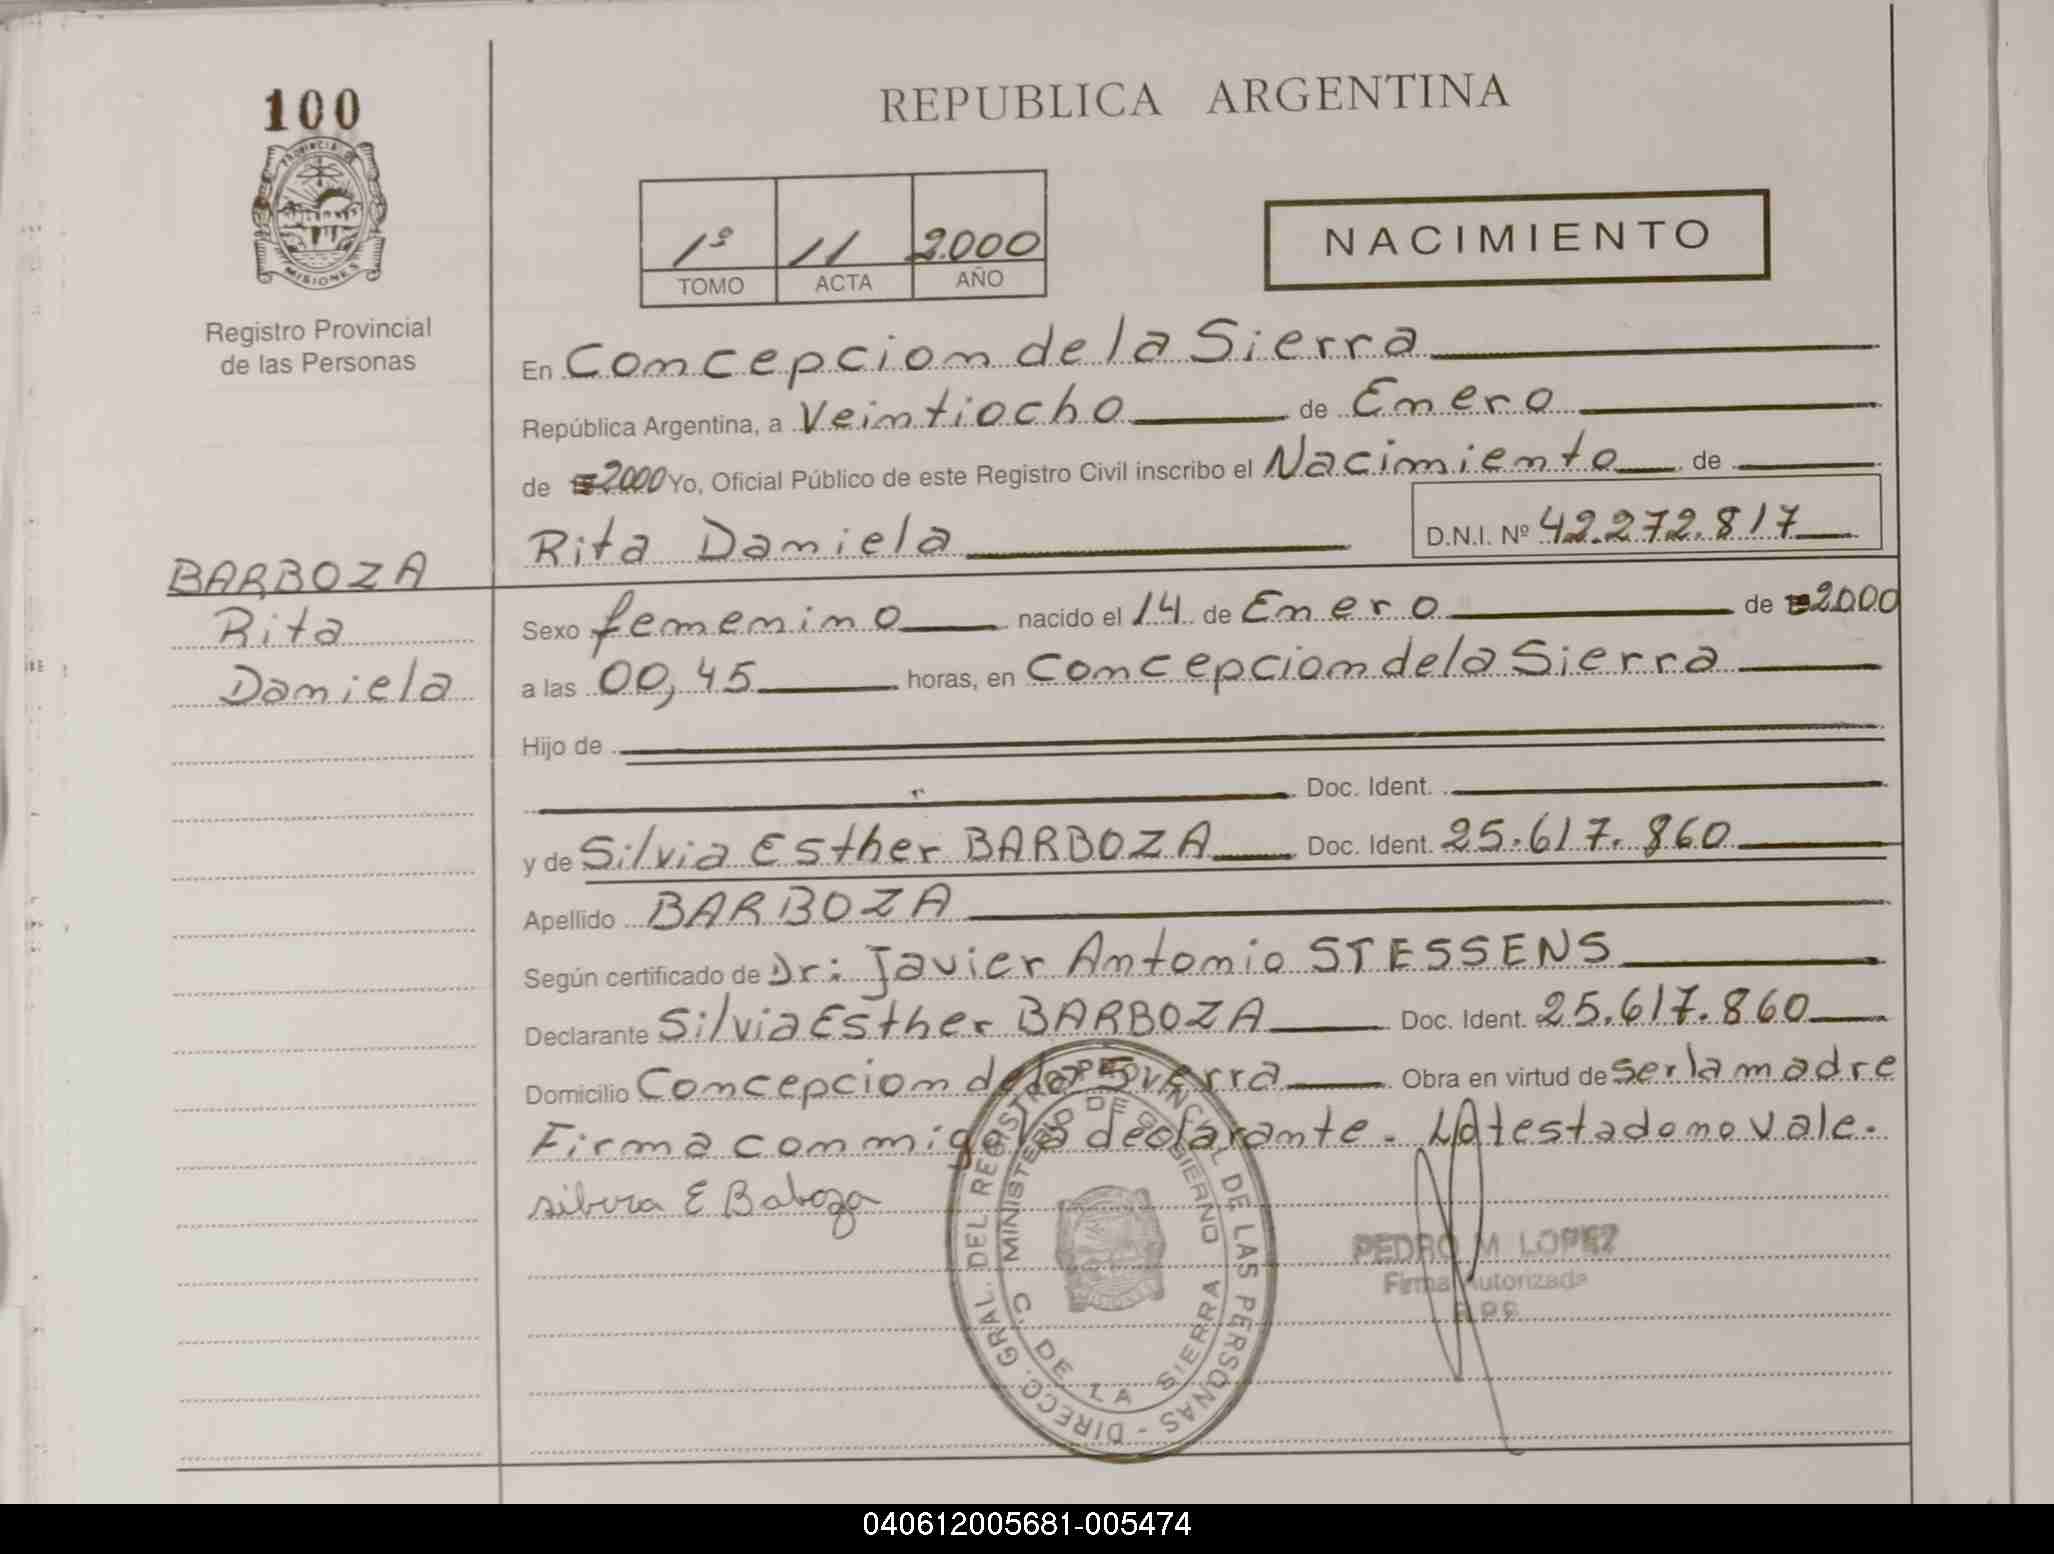 100
PROVINCIA DE
MISIONES
Registro Provincial
de las Personas
BARBOZA
Rita
Daniela
REPUBLICA ARGENTINA
1º 11 2.000
TOMO ACTA AÑO
NACIMIENTO
En Concepcion de la Sierra
República Argentina, a Veintiocho de Enero
de 2000 Yo, Oficial Público de este Registro Civil inscribo el Nacimiento de
Rita Daniela D.N.I. Nº 42.272.817
Sexo femenino nacido el 14 de Enero de 2000
a las 00,45 horas, en Concepcion de la Sierra
Hijo de
Doc. Ident.
y de Silvia Esther BARBOZA Doc. Ident. 25.617.860
Apellido BARBOZA
Según certificado de Dr: Javier Antonio STESSENS
Declarante Silvia Esther BARBOZA Doc. Ident. 25.617.860
Domicilio Concepcion de la Sierra Obra en virtud de ser la madre
Firma conmigo la declarante. Lo testado no vale.
silvia E Baboza
DIRECC. GRAL. DEL REGISTRO PROVINCIAL DE LAS PERSONAS -
MINISTERIO DE GOBIERNO
C. DE LA SIERRA
MISIONES
PEDRO M LOPEZ
Firma Autorizada
040612005681-005474